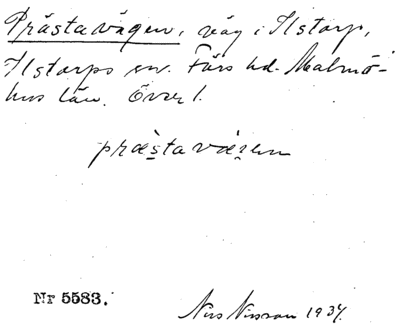 Prästavägen, väg i Ilstorp,
Ilstorps sn. Färs hd. Malmö-
hus län. Över l.
præstavæɜen
Nr 5583.
Nils Nilsson 1934.